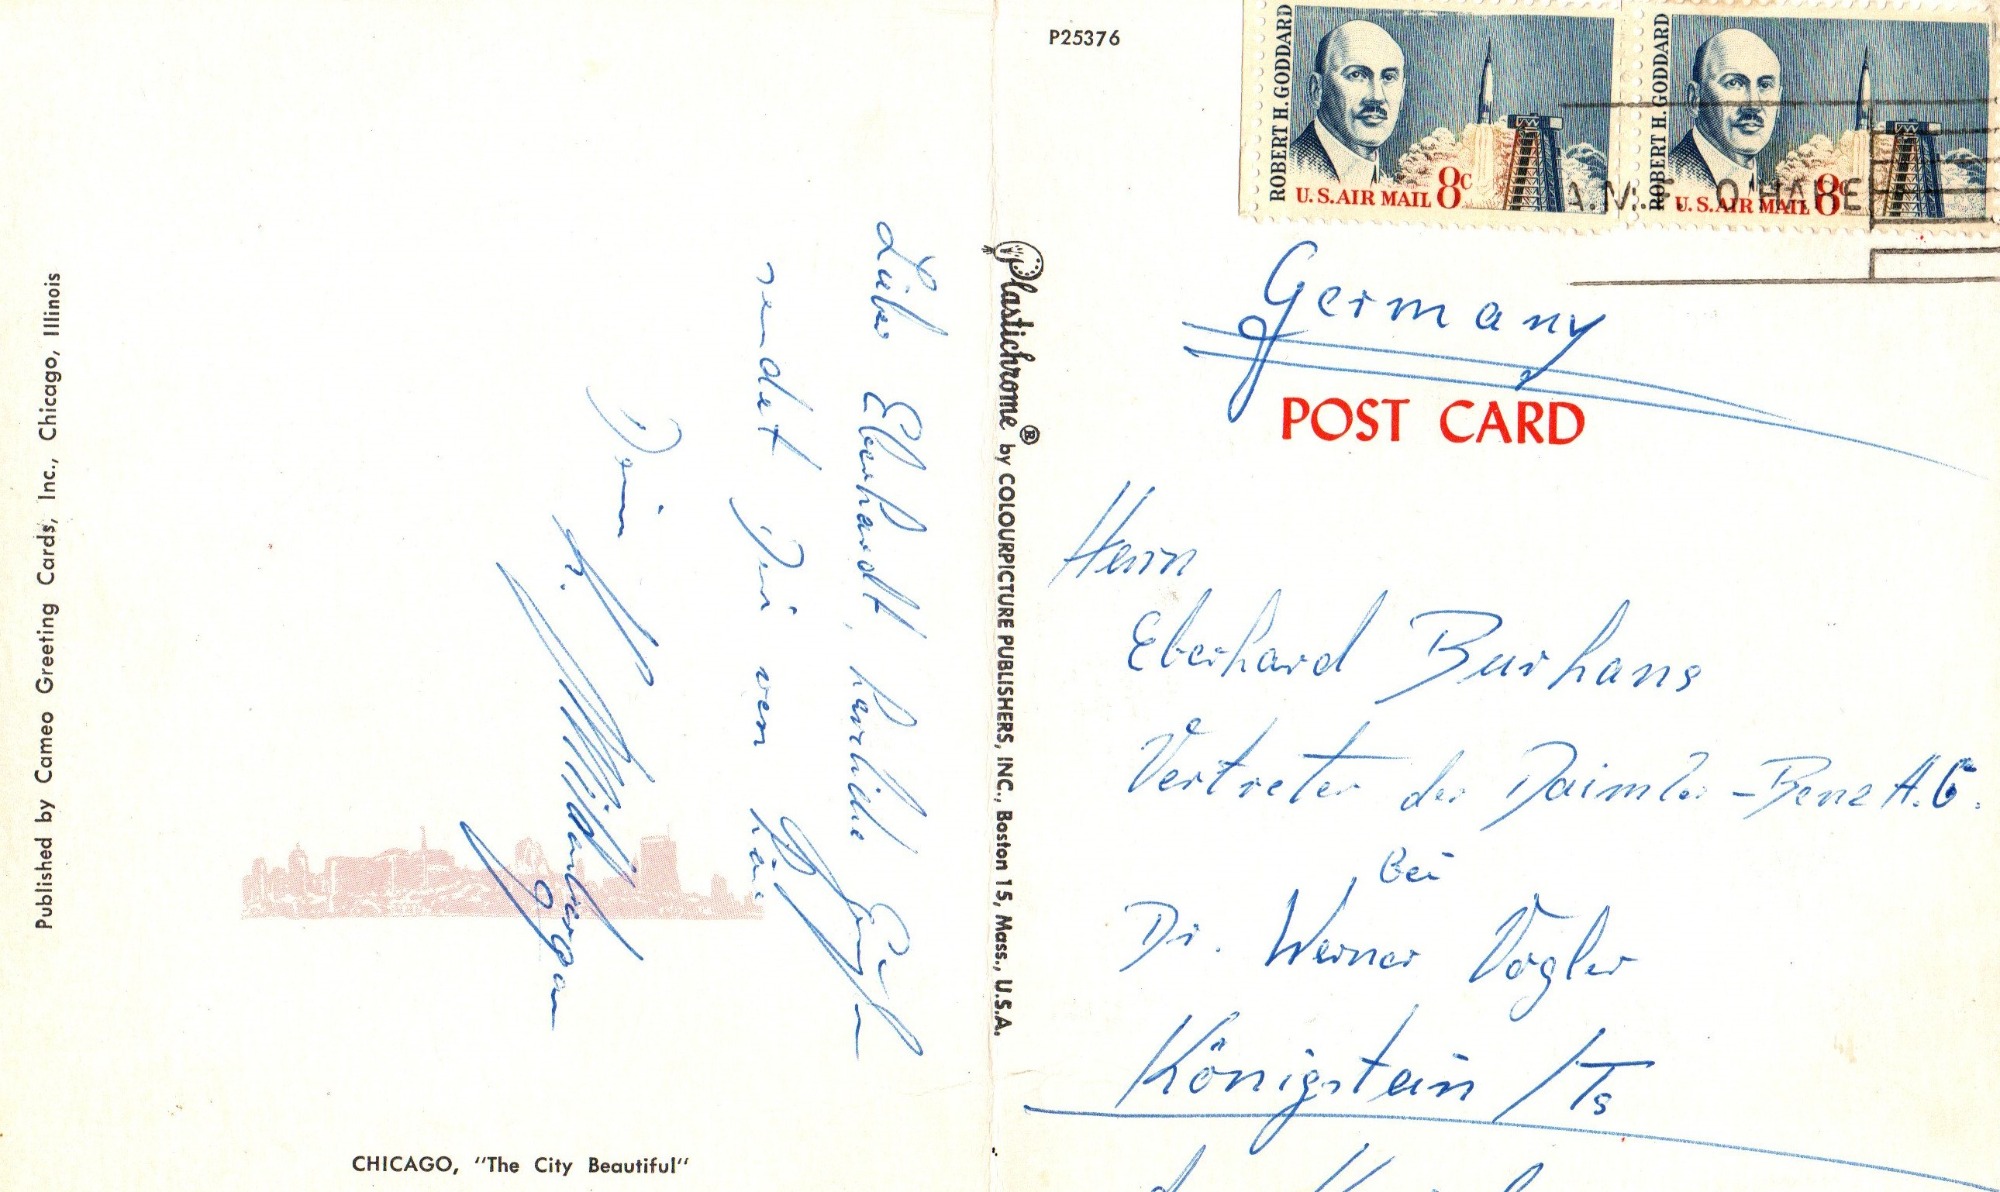 Published by Cameo Greeting Cards, Inc., Chicago, Illinois
Lieber Eberhardt, herzliche Grüße
sendet Dir von hier
Dein
CHICAGO, "The City Beautiful"
Plastichrome® by COLOURPICTURE PUBLISHERS, INC., Boston 15, Mass., U.S.A.
P25376
ROBERT H. GODDARD
U.S. AIR MAIL 8c
ROBERT H. GODDARD
U.S. AIR MAIL 8c
A.M.F. O'HARE
Germany
POST CARD
Herrn
Eberhard Burhans
Vertreter der Daimler-Benz A.G.
bei
Dr. Werner Vogler
Königstein /Ts